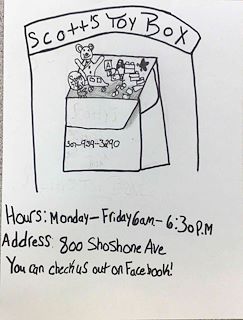 Scott's Toy Box
307-939-3290
Hours: Monday-Friday 6am-6:30 P.M
Address: 800 Shoshone Ave
You can check us out on Facebook!